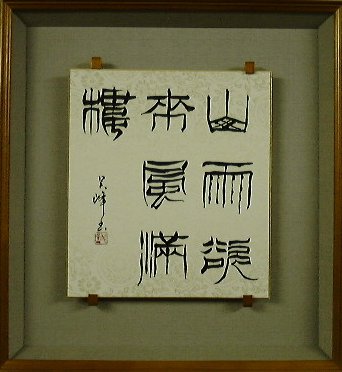 山雨欲
来風満
樓